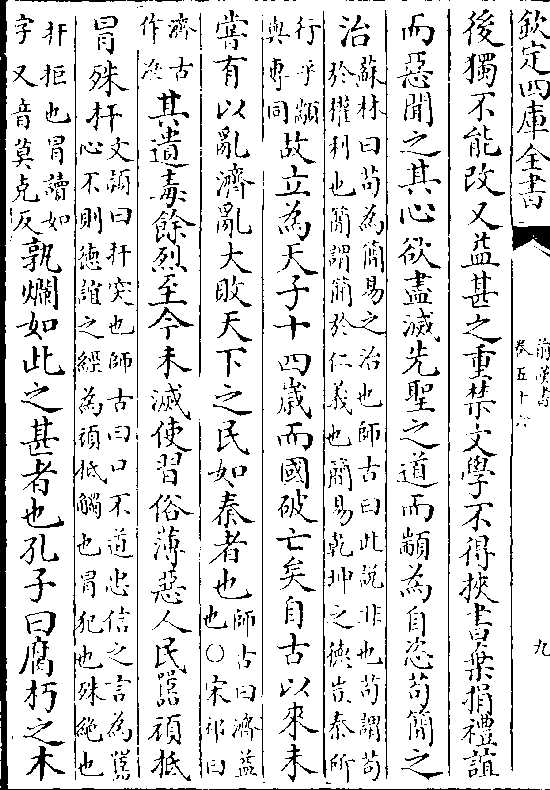 欽定四庫全書
前漢書
卷五十六
九
後獨不能改又益甚之重禁文學不得挾書棄捐禮誼
而惡聞之其心欲盡滅先聖之道而顓為自恣苟簡之
治蘇林曰苟為簡易之治也師古曰此說非也苟謂苟
於權利也簡謂簡於仁義也簡易乾坤之德豈秦所
行乎顓
與專同故立為天子十四歲而國破亡矣自古以來未
嘗有以亂濟亂大敗天下之民如秦者也師古曰濟益
也○宋祁曰
濟古
作泲其遺毒餘烈至今未滅使習俗薄惡人民嚚頑抵
冒殊扞文穎曰扞突也師古曰口不道忠信之言為嚚
心不則德誼之經為頑抵觸也冒犯也殊絶也
扞拒也冒讀如
字又音莫克反孰爛如此之甚者也孔子曰腐朽之木